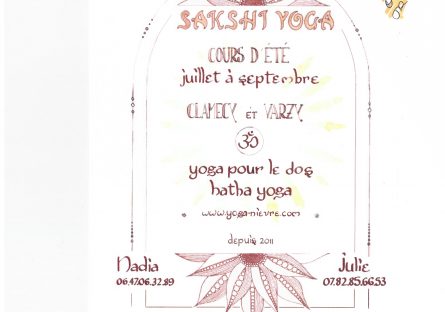 SAKSHI YOGA
COURS D'ÉTÉ
juillet à septembre
CLAMECY et VARZY
ॐ
yoga pour le dos
hatha yoga
www.yoga-nievre.com
depuis 2011
Nadia
06.47.06.32.89
Julie
07.82.85.66.53